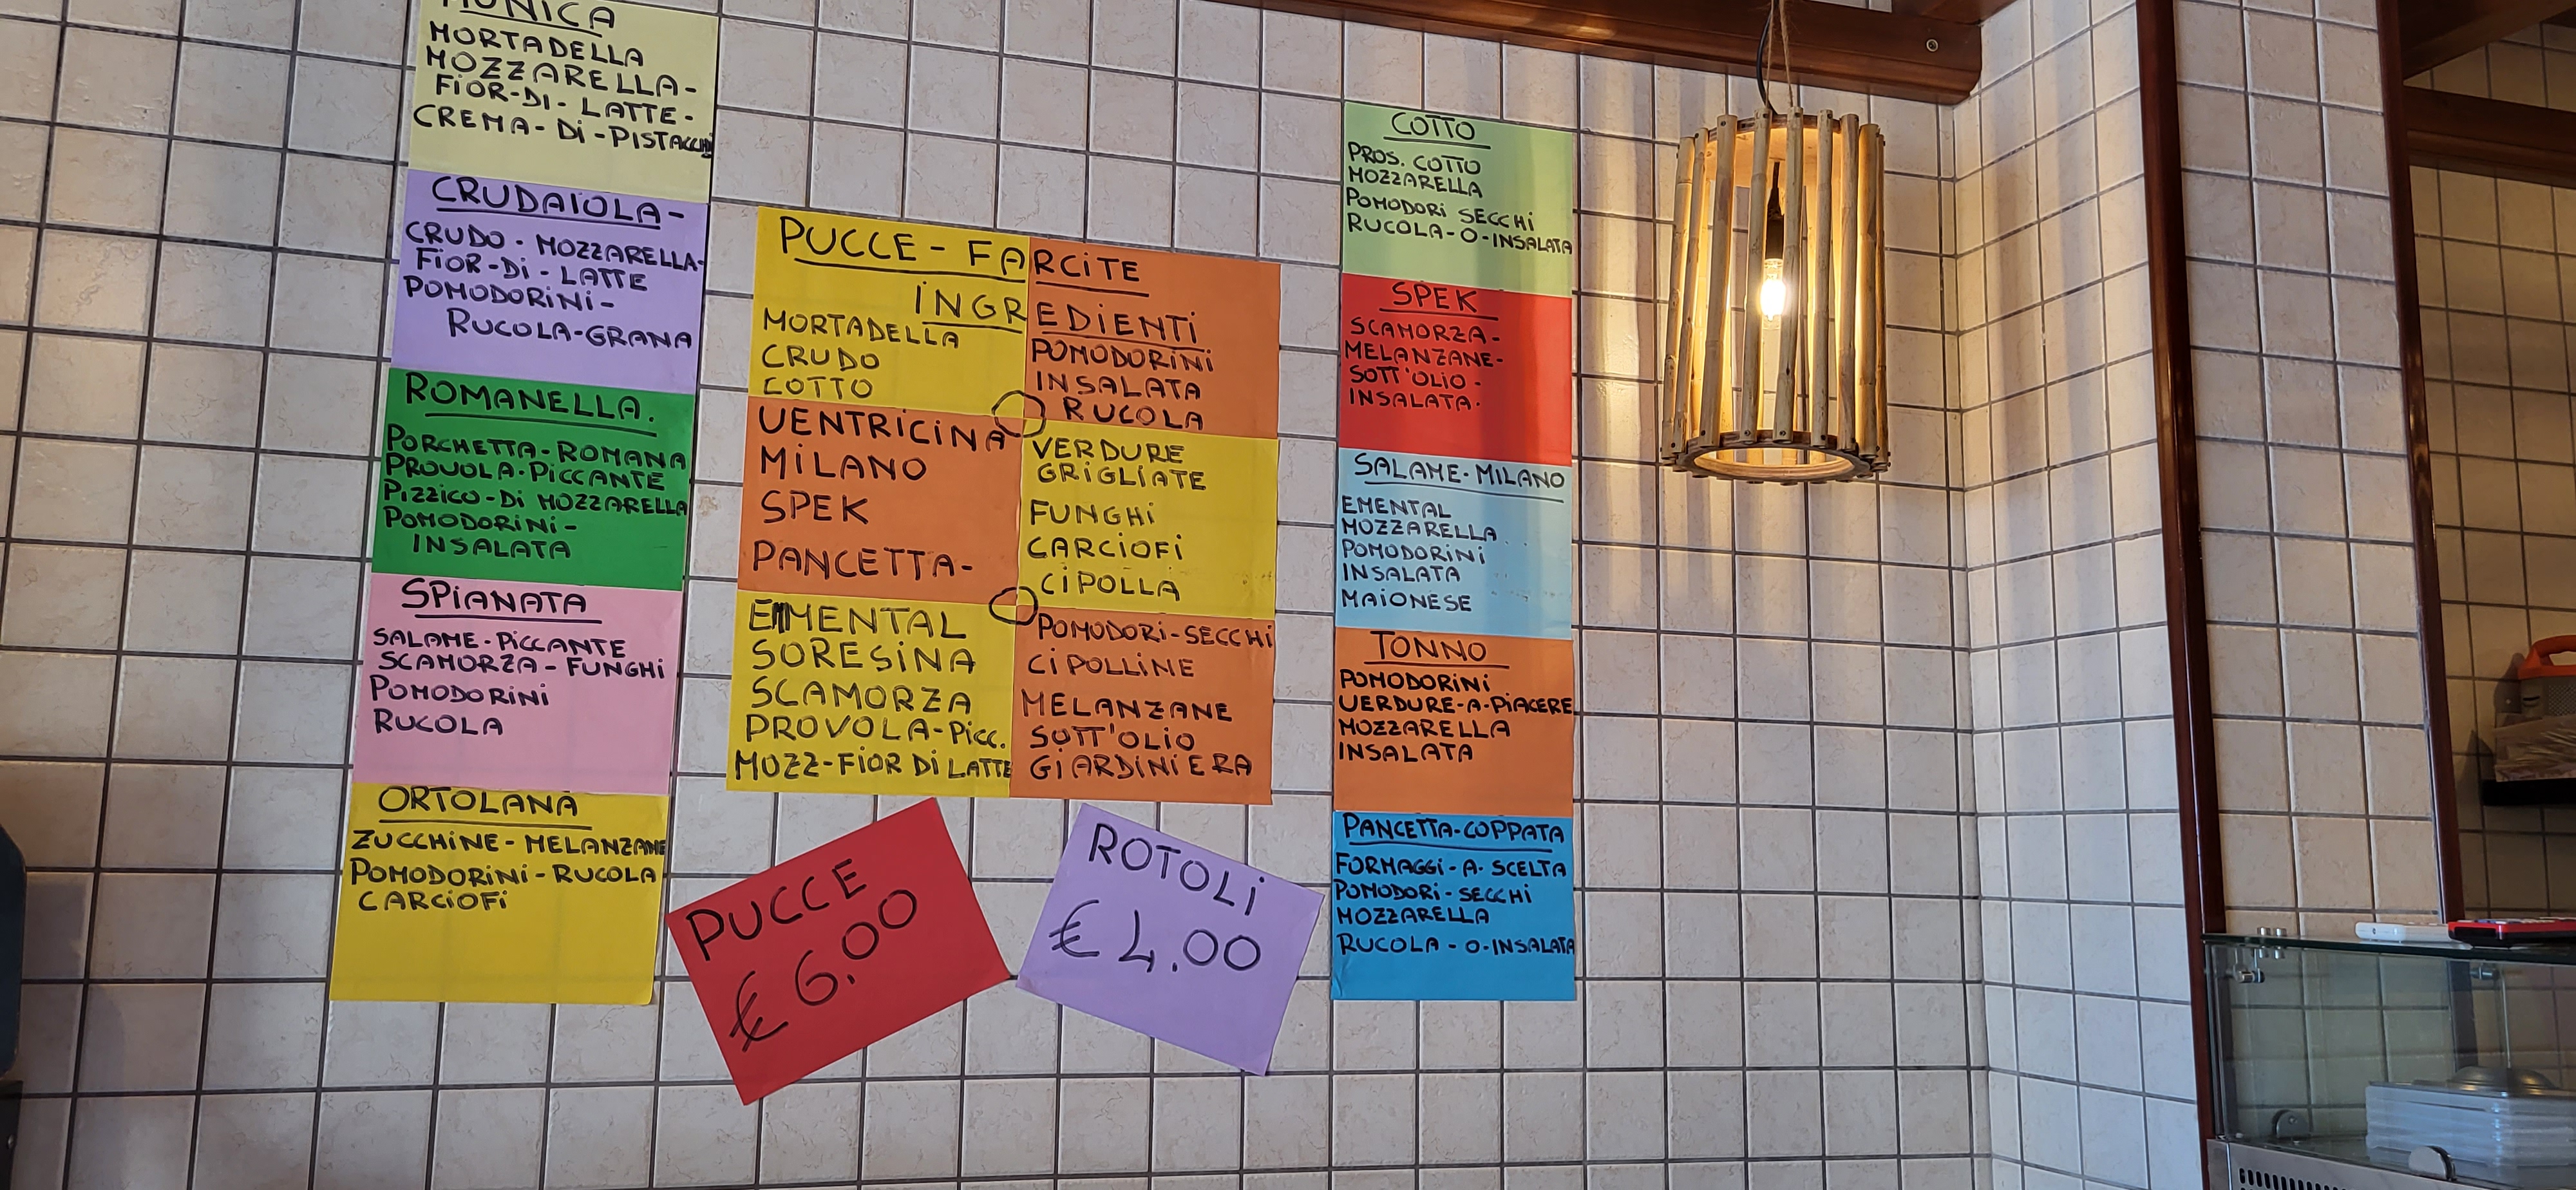 MORTADELLA
MOZZARELLA-
FIOR-DI-LATTE-
CREMA-DI-PISTACCHI
CRUDAIOLA-
CRUDO-MOZZARELLA-
FIOR-DI-LATTE
POMODORINI-
RUCOLA-GRANA
ROMANELLA.
PORCHETTA-ROMANA
PROVOLA-PICCANTE
PIZZICO-DI MOZZARELLA
POMODORINI-
INSALATA
SPIANATA
SALAME-PICCANTE
SCAMORZA-FUNGHI
POMODORINI
RUCOLA
ORTOLANA
ZUCCHINE-MELANZANE
POMODORINI-RUCOLA
CARCIOFI
PUCCE-FARCITE
INGREDIENTI
MORTADELLA
CRUDO
COTTO
VENTRICINA
MILANO
SPEK
PANCETTA-
EMENTAL
SORESINA
SCAMORZA
PROVOLA-PICC.
MOZZ-FIOR DI LATTE
POMODORINI
INSALATA
RUCOLA
VERDURE
GRIGLIATE
FUNGHI
CARCIOFI
CIPOLLA
POMODORI-SECCHI
CIPOLLINE
MELANZANE
SOTT'OLIO
GIARDINIERA
PUCCE
€ 6.00
ROTOLI
€ 4.00
COTTO
PROS. COTTO
MOZZARELLA
POMODORI SECCHI
RUCOLA-O-INSALATA
SPEK
SCAMORZA-
MELANZANE-
SOTT'OLIO-
INSALATA.
SALAME-MILANO
EMENTAL
MOZZARELLA
POMODORINI
INSALATA
MAIONESE
TONNO
POMODORINI
VERDURE-A-PIACERE
MOZZARELLA
INSALATA
PANCETTA-COPPATA
FORMAGGI-A-SCELTA
POMODORI-SECCHI
MOZZARELLA
RUCOLA-O-INSALATA